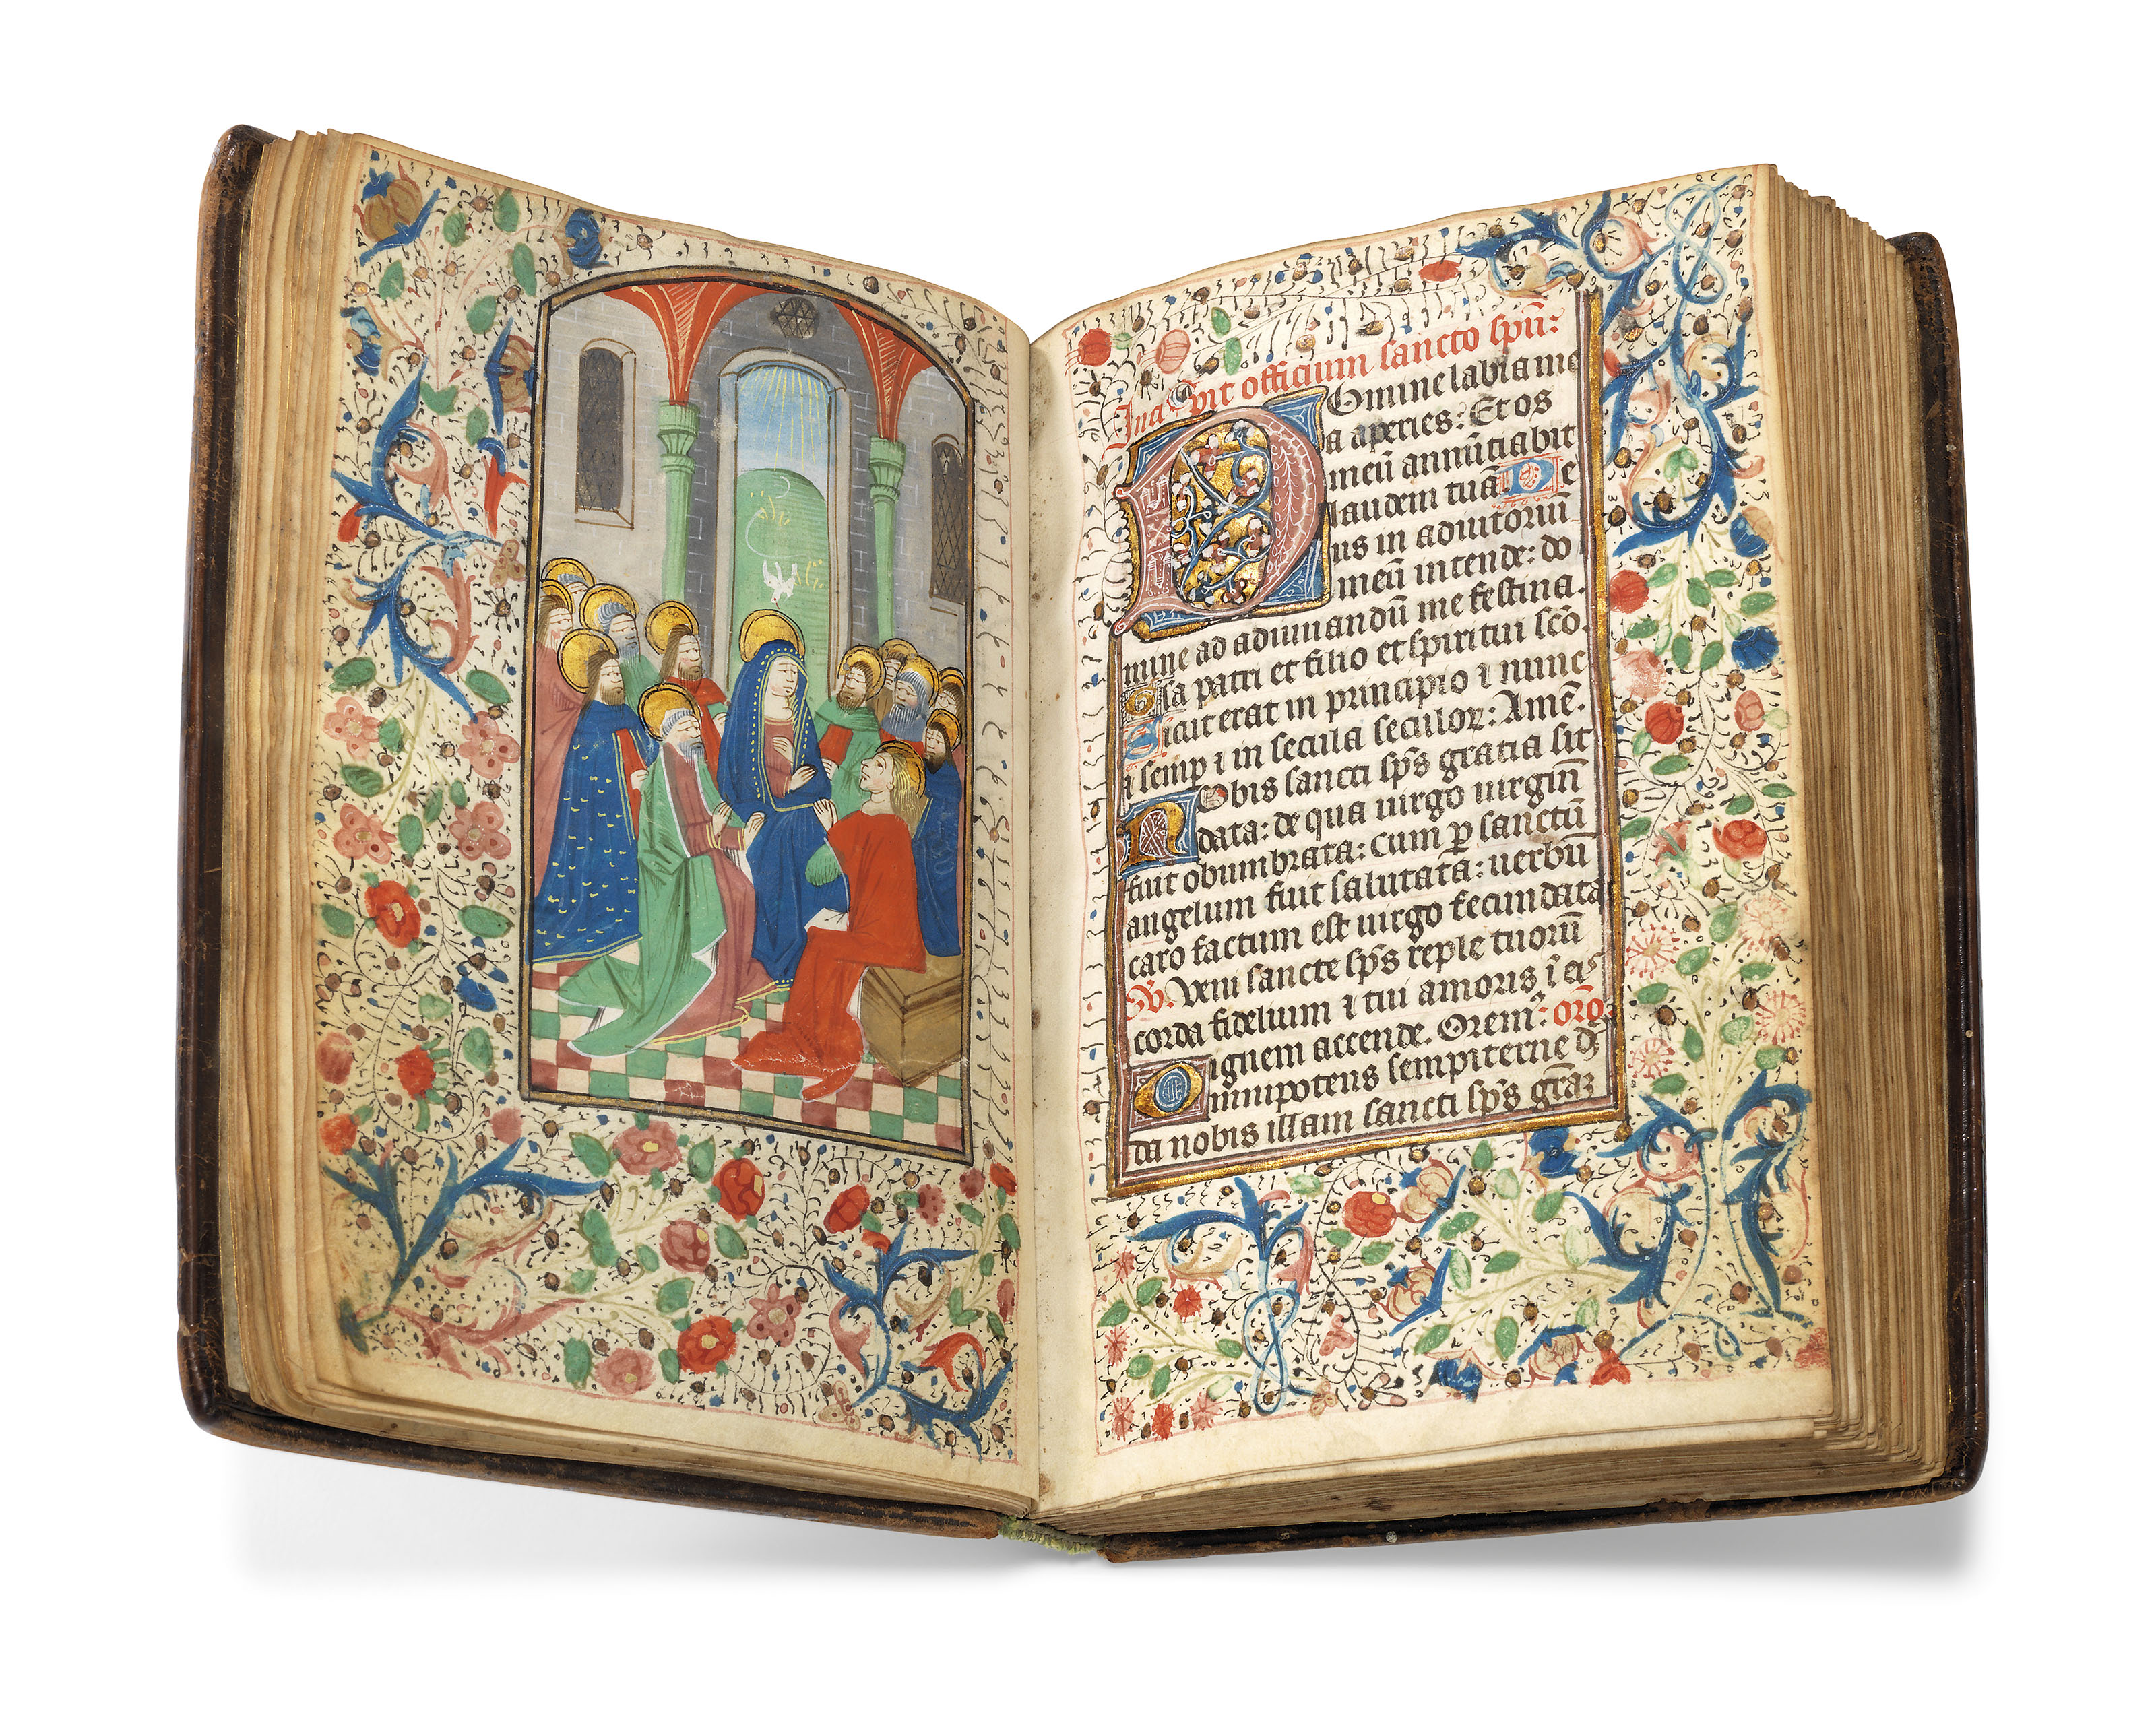 Incipit officium sancto spūs:
Domine labia me
a aperies: Et os
meū annūciabit
laudem tuā. De
us in adiutoriū
meū intende: do
mine ad adiuuandū me festina.
Gla patri et filio et spiritui scō.
Sicut erat in principio ⁊ nunc
⁊ semp ⁊ in secula seculoꝝ: Amē.
Nobis sancti sp̄s gratia sit
data: de qua uirgo uirginū
fuit obumbrata: cum ꝑ sanctū
angelum fuit salutata: uerbū
caro factum est uirgo fecundata
℣. Veni sancte sp̄s reple tuorū
corda fidelium ⁊ tui amoris ī eis
ignem accende. Oremꝰ: orō.
Omnipotens sempiterne dꝰ
da nobis illam sancti sp̄s grāꝫ